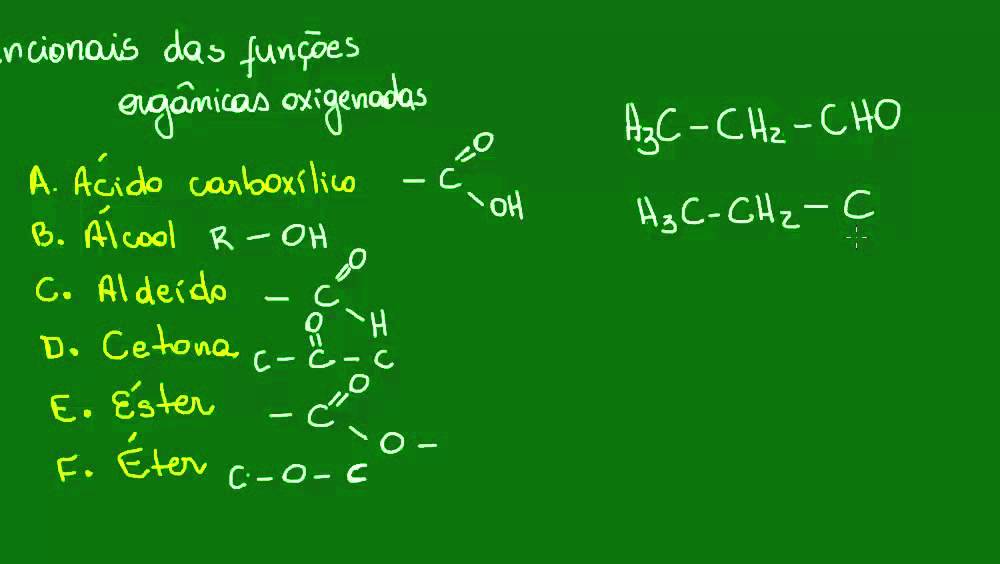 ncionais das funções
orgânicas oxigenadas
A. Ácido carboxílico – C = O OH
B. Álcool R – OH
C. Aldeído – C = O H
D. Cetona C – C – C = O
E. Éster – C = O O –
F. Éter C – O – C
H₃C – CH₂ – CHO
H₃C – CH₂ – C